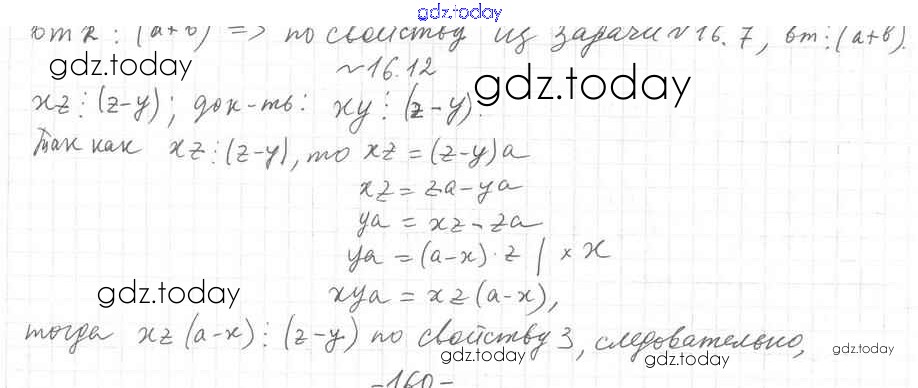 gdz.today
⋮ (a+b) => по свойству из задачи №16.7, bm⋮(a+b).
gdz.today
№16.12
gdz.today
xz⋮(z-y); док-ть: xy⋮(z-y).
Так как xz⋮(z-y), то xz=(z-y)a
xz=za-ya
ya=xz-za
ya=(a-x)·z | ×x
gdz.today
xya=xz(a-x),
тогда xz(a-x)⋮(z-y) по свойству 3, следовательно,
gdz.today
gdz.today
gdz.today
-160-